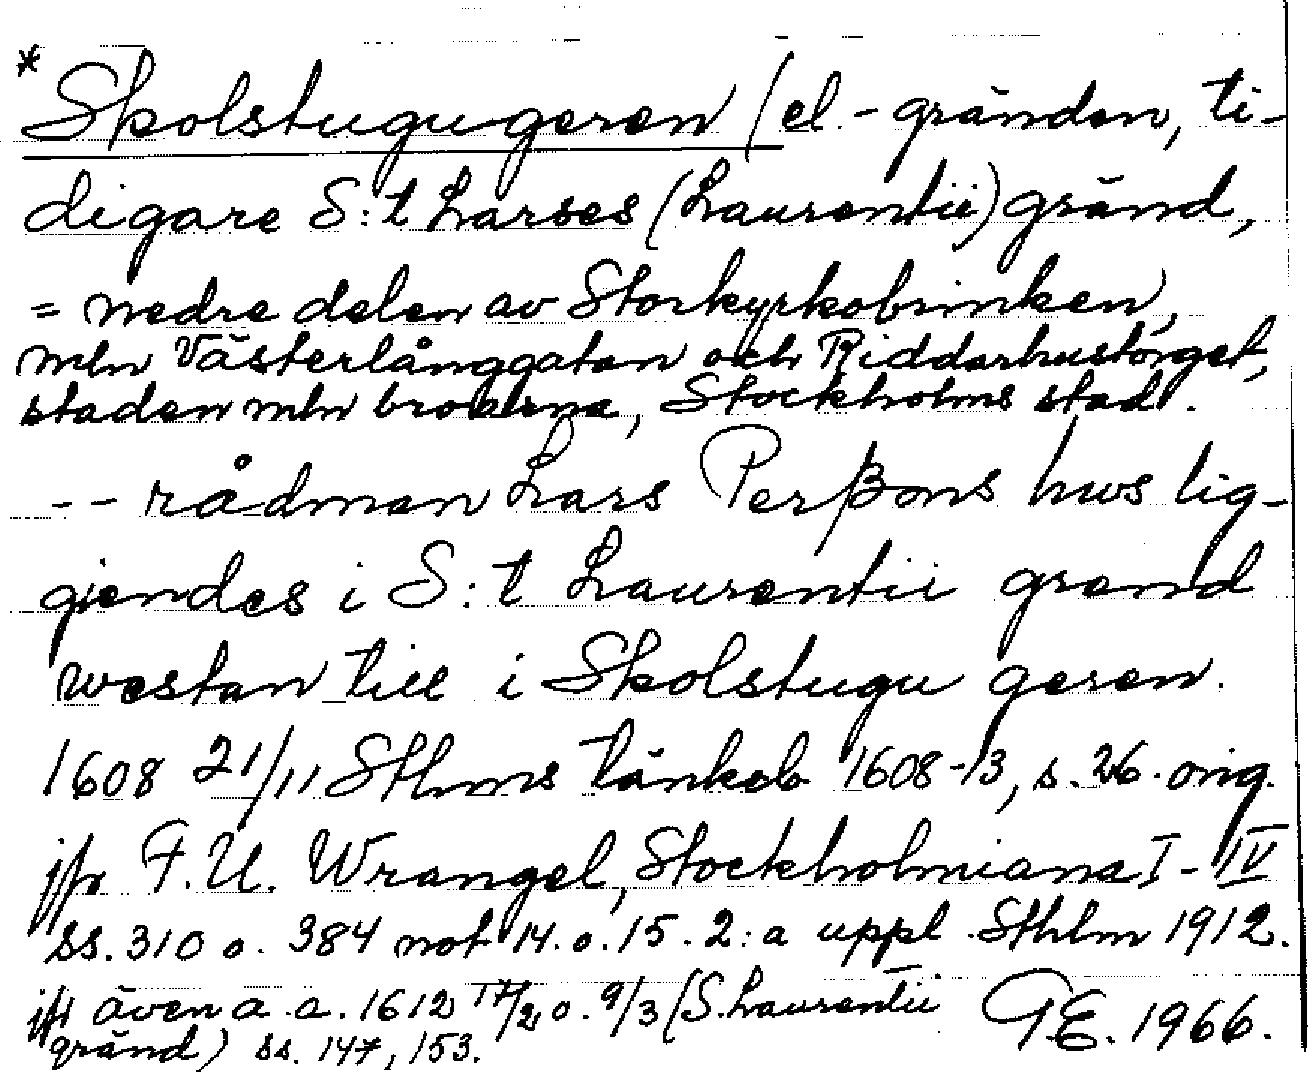 * Skolstugugeren (el.-gränden, ti-
digare S:t Larses (Laurentii) gränd,
= nedre delen av Storkyrkobrinken,
mln Västerlånggatan och Riddarhustorget,
staden mln broarna, Stockholms stad.
-- rådman Lars Perßons hws lig-
gjendes i S:t Laurentii grend
westan till i Skolstugu geren.
1608 21/11 Sthms tänkeb 1608-13, s. 26. orig.
jfr F.U. Wrangel, Stockholmiana I-IV
ss. 310 o. 384 not 14. o. 15. 2:a uppl. Sthlm 1912.
jfr även a. a. 1612 17/2 o. 9/3 (S. Laurentii
gränd) ss. 147, 153. G.E. 1966.